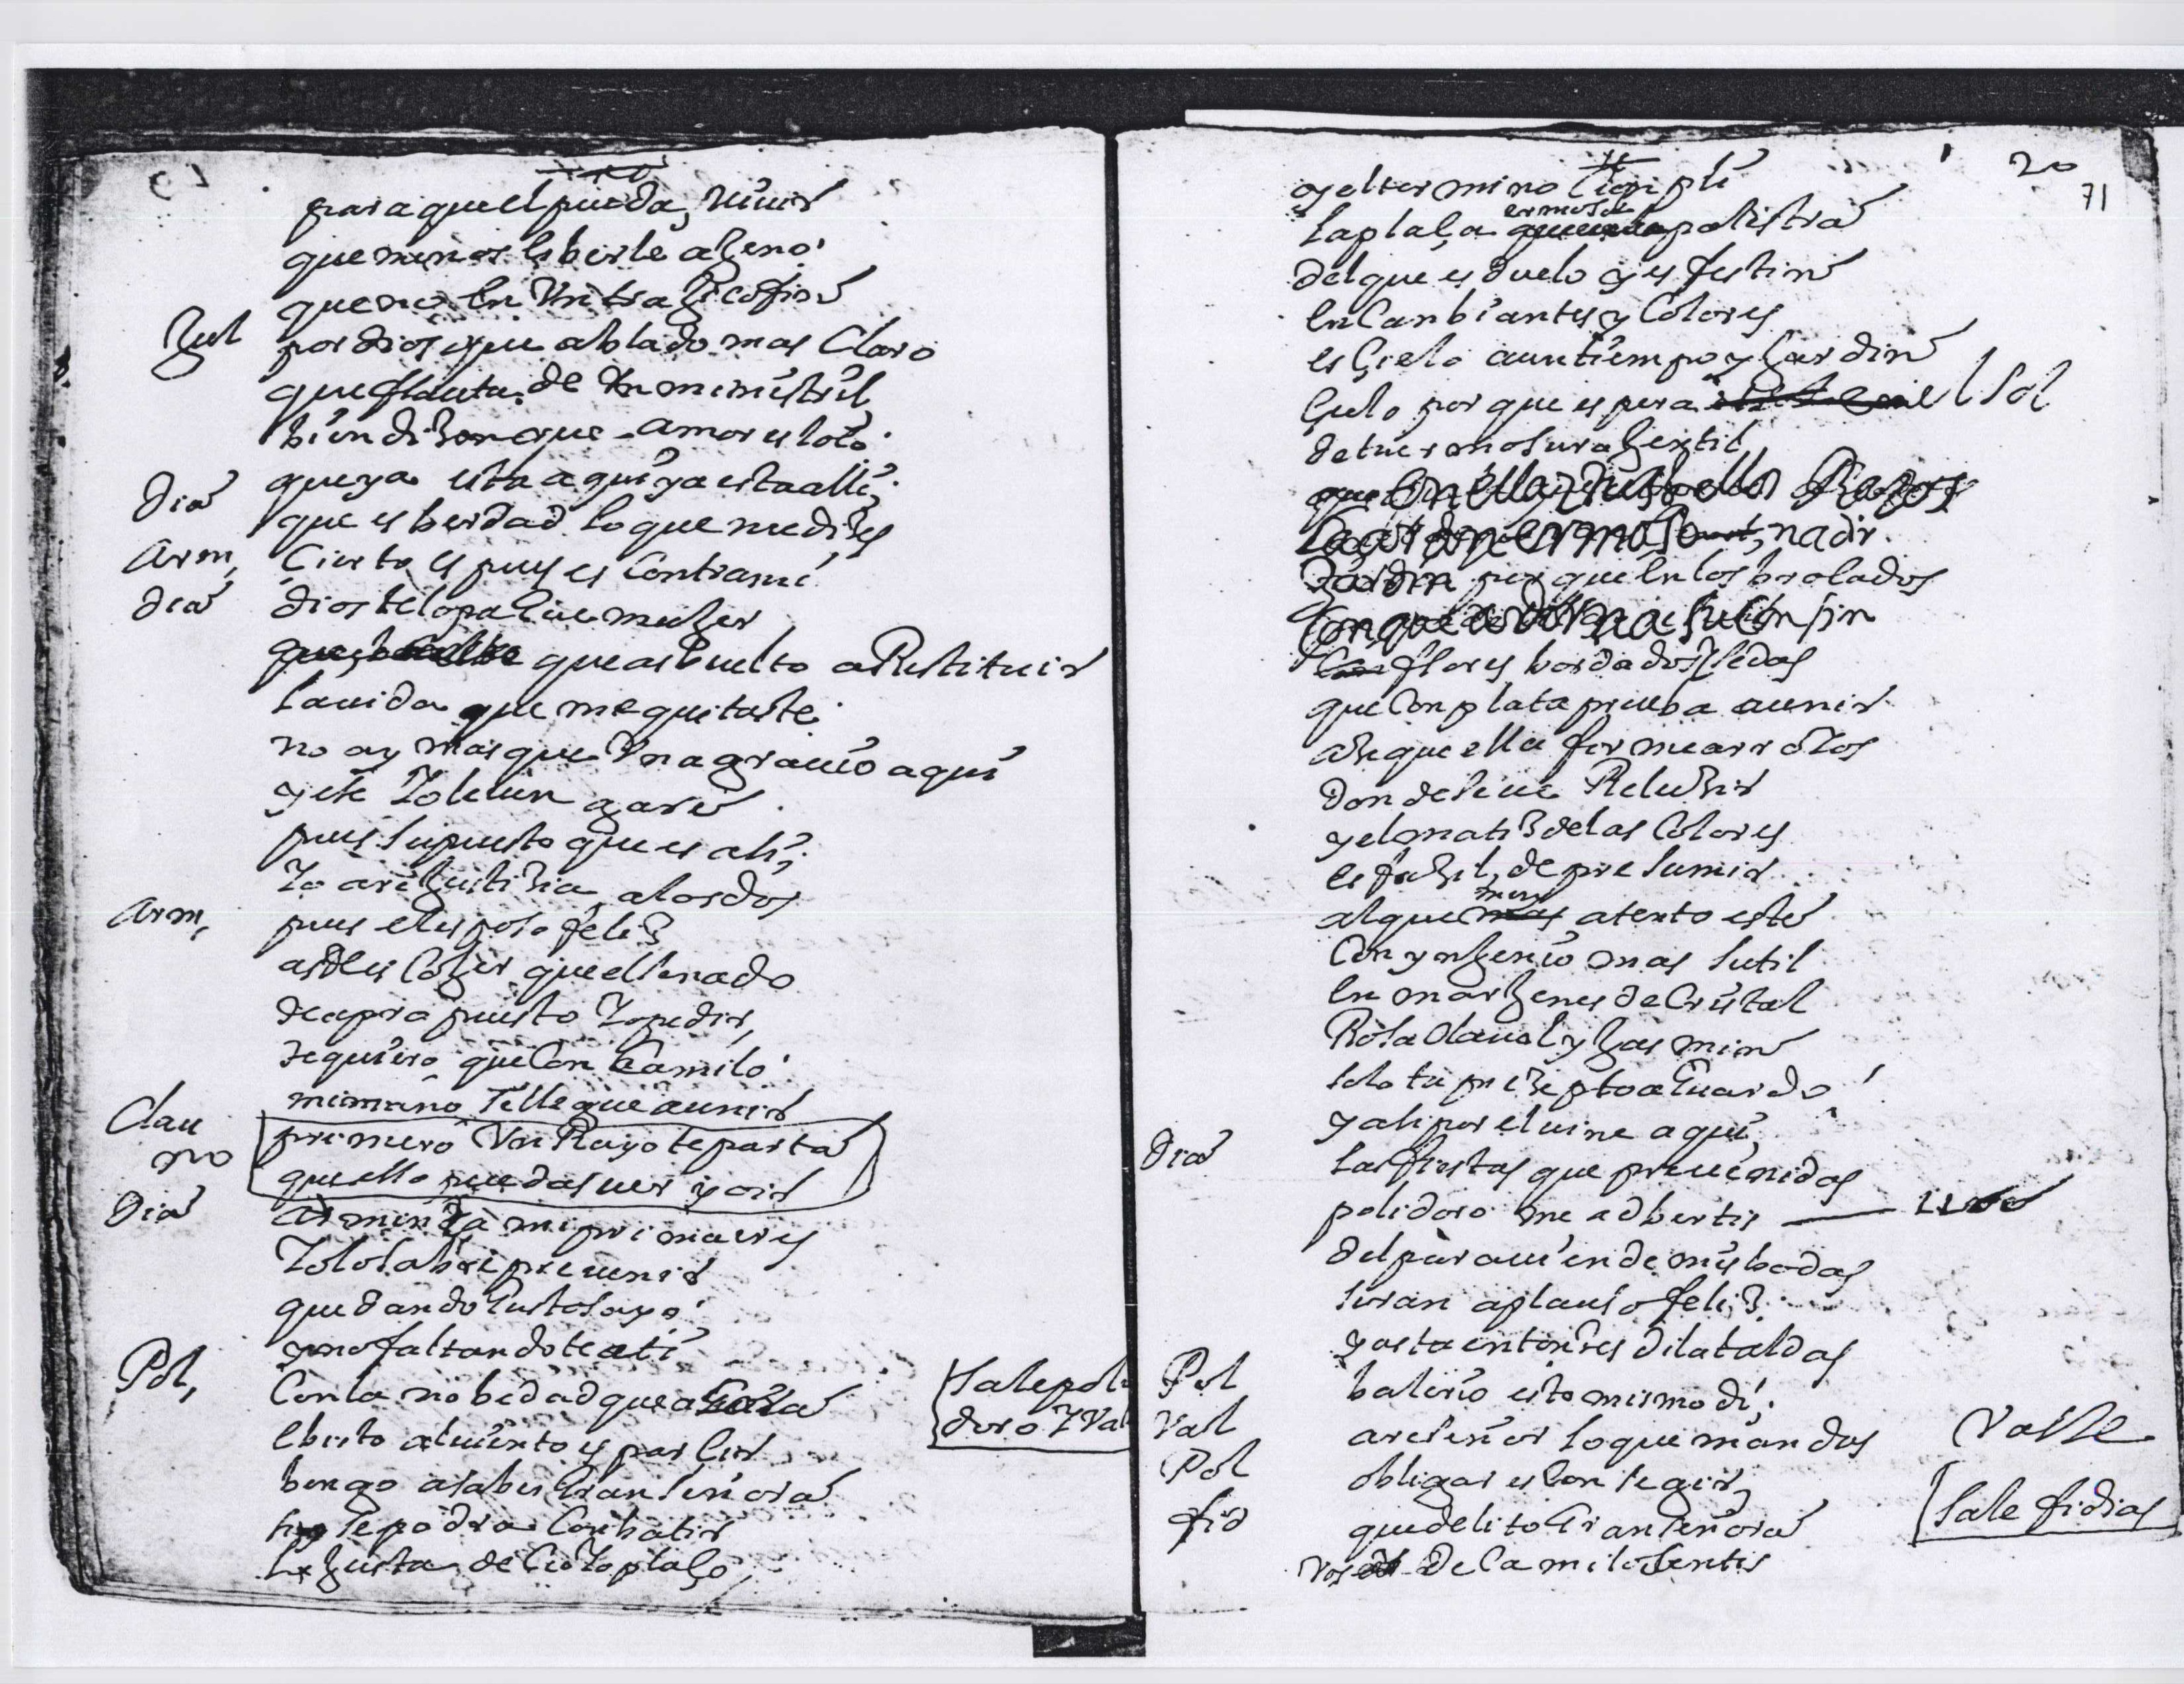 para quel pueda, viuir
que menos es berle ageno
que no en Vn tragico fin
Jul por dios que ablado mas Claro
que flauta de Vn ministril
bien dizen que amor es loco
que ya esta aqui ya esta alli,
Dia que es berdad lo que me dizes
Arm, Cierto es pues es Contra mi
dia dios te lo page muger
que as buelto a Restituir
la uida que me quitaste
no ay mas que Vn agrauio aqui
y ese Yo le uengare
pues supuesto que es asi,
Yo are justizia, a los dos
Arm, pues el esposo feliz
as de escoger que el senado
de a propuesto Yo pedir,
te quiero que Con Camilo
mi mano se llegue a unir
Clau primero Vn Rayo te parta
no quello puedas uer y oir
Dia Arminda mi prima es y
Yo lo sabre preuenir
quedando Gustosa yo
y no faltandote a ti
Pol, Con la nobedad que a Grasia
Sale poli
doro Y Val
Ebisto al uiento esparcir
bengo a saber Gran señora
se podra Conbatir
La justa de Cuyo plaço
20
71
y el termino Cumpli
la plaça ermosa palistra
del que es duelo y es festin
en Canbiantes y Colores
es Çielo a un tiempo y Jardin
Çielo por que espera el Sol
de tu ermosura gentil
que en ella tus bellos Rayos
ermoso nadir
Jardin por que en los brocados
Con que adorna su Confin
flores bordados y sedas
que Con plata prueba a unir
aze que ella forme arroyos
donde se ue Reluzir
y el matiz de las Colores
es fazil, de presumir
al que muy atento este
Con yngenio mas sutil
en margenes de Cristal
Rosa Clauel y Jasmin
solo tu prezepto aGuardo
y asi por el uine aqui
Dia Las fiestas que preuenidas
polidoro me adbertis
del parauien de mis bodas
seran aplauso feliz
y asta entonzes dilataldas
Pol balerio esto mismo di,
Val are señor lo que mandas Vasse
Pol obligar es Conseguir,
Sale fidias
fid que delito Gran señora
Vos de Camilo sentis